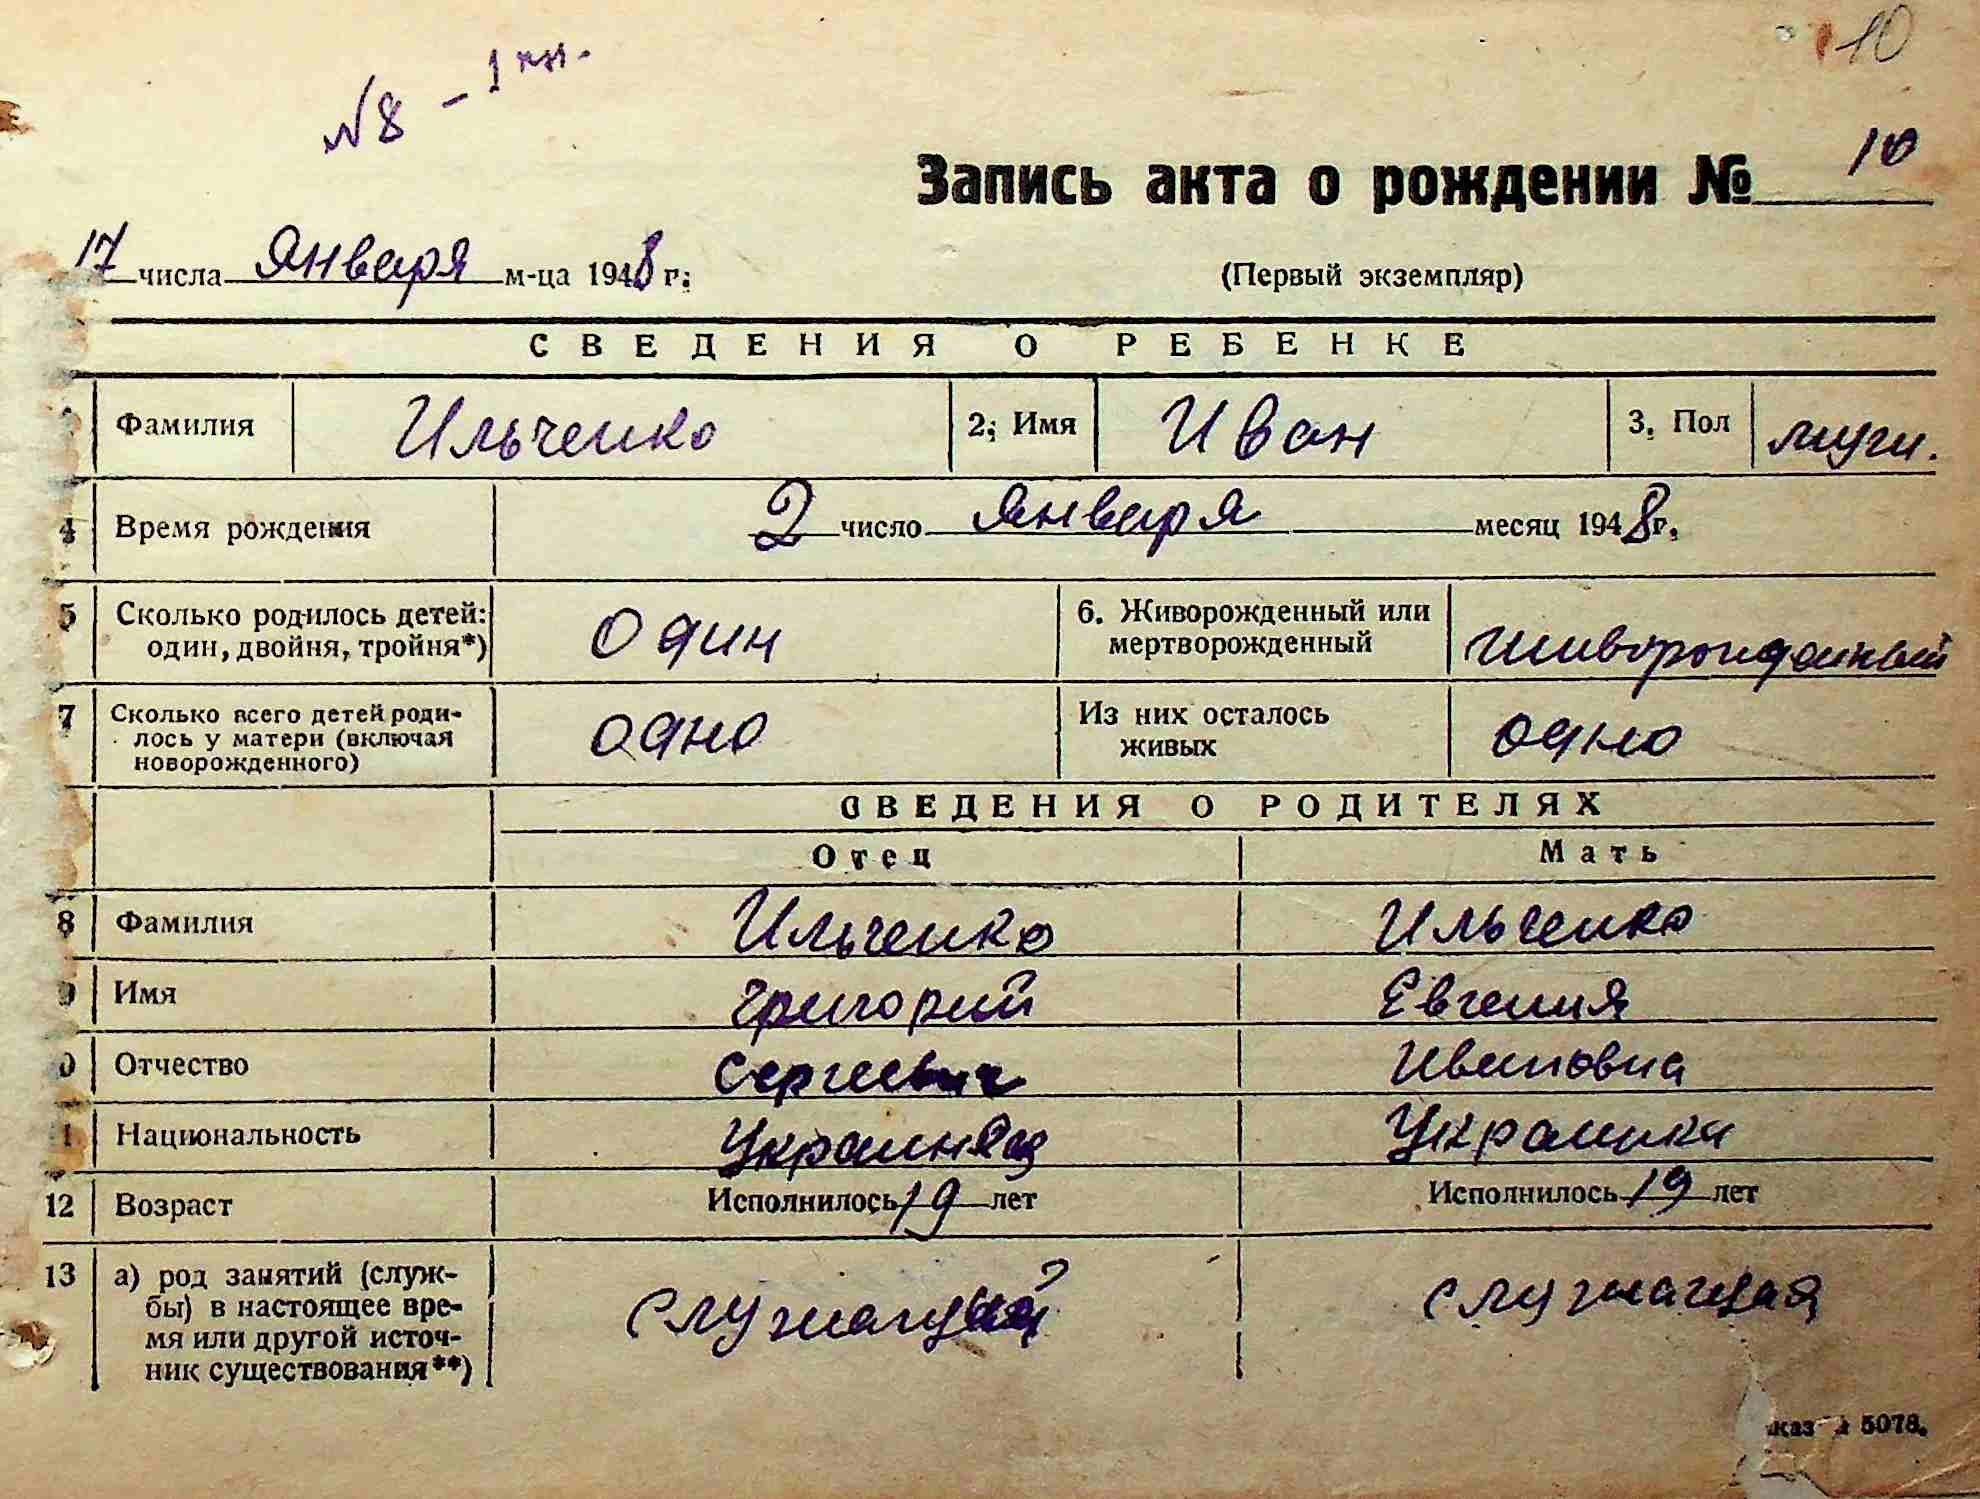 10
№8 – 1 кн.
Запись акта о рождении № 10
17 числа января м-ца 1948 г.
(Первый экземпляр)
СВЕДЕНИЯ О РЕБЕНКЕ
Фамилия Ильченко 2. Имя Иван 3. Пол муж.
4 Время рождения 2 число января месяц 1948 г.
5 Сколько родилось детей: один 6. Живорожденный или живорожденный
один, двойня, тройня*) мертворожденный
7 Сколько всего детей роди- одно Из них осталось одно
лось у матери (включая живых
новорожденного)
СВЕДЕНИЯ О РОДИТЕЛЯХ
Отец Мать
8 Фамилия Ильченко Ильченко
9 Имя Григорий Евгения
0 Отчество Сергиевич Ивановна
1 Национальность Украинец Украинка
12 Возраст Исполнилось 19 лет Исполнилось 19 лет
13 а) род занятий (служ- служащий служащая
бы) в настоящее вре-
мя или другой источ-
ник существования**)
каз 5078.